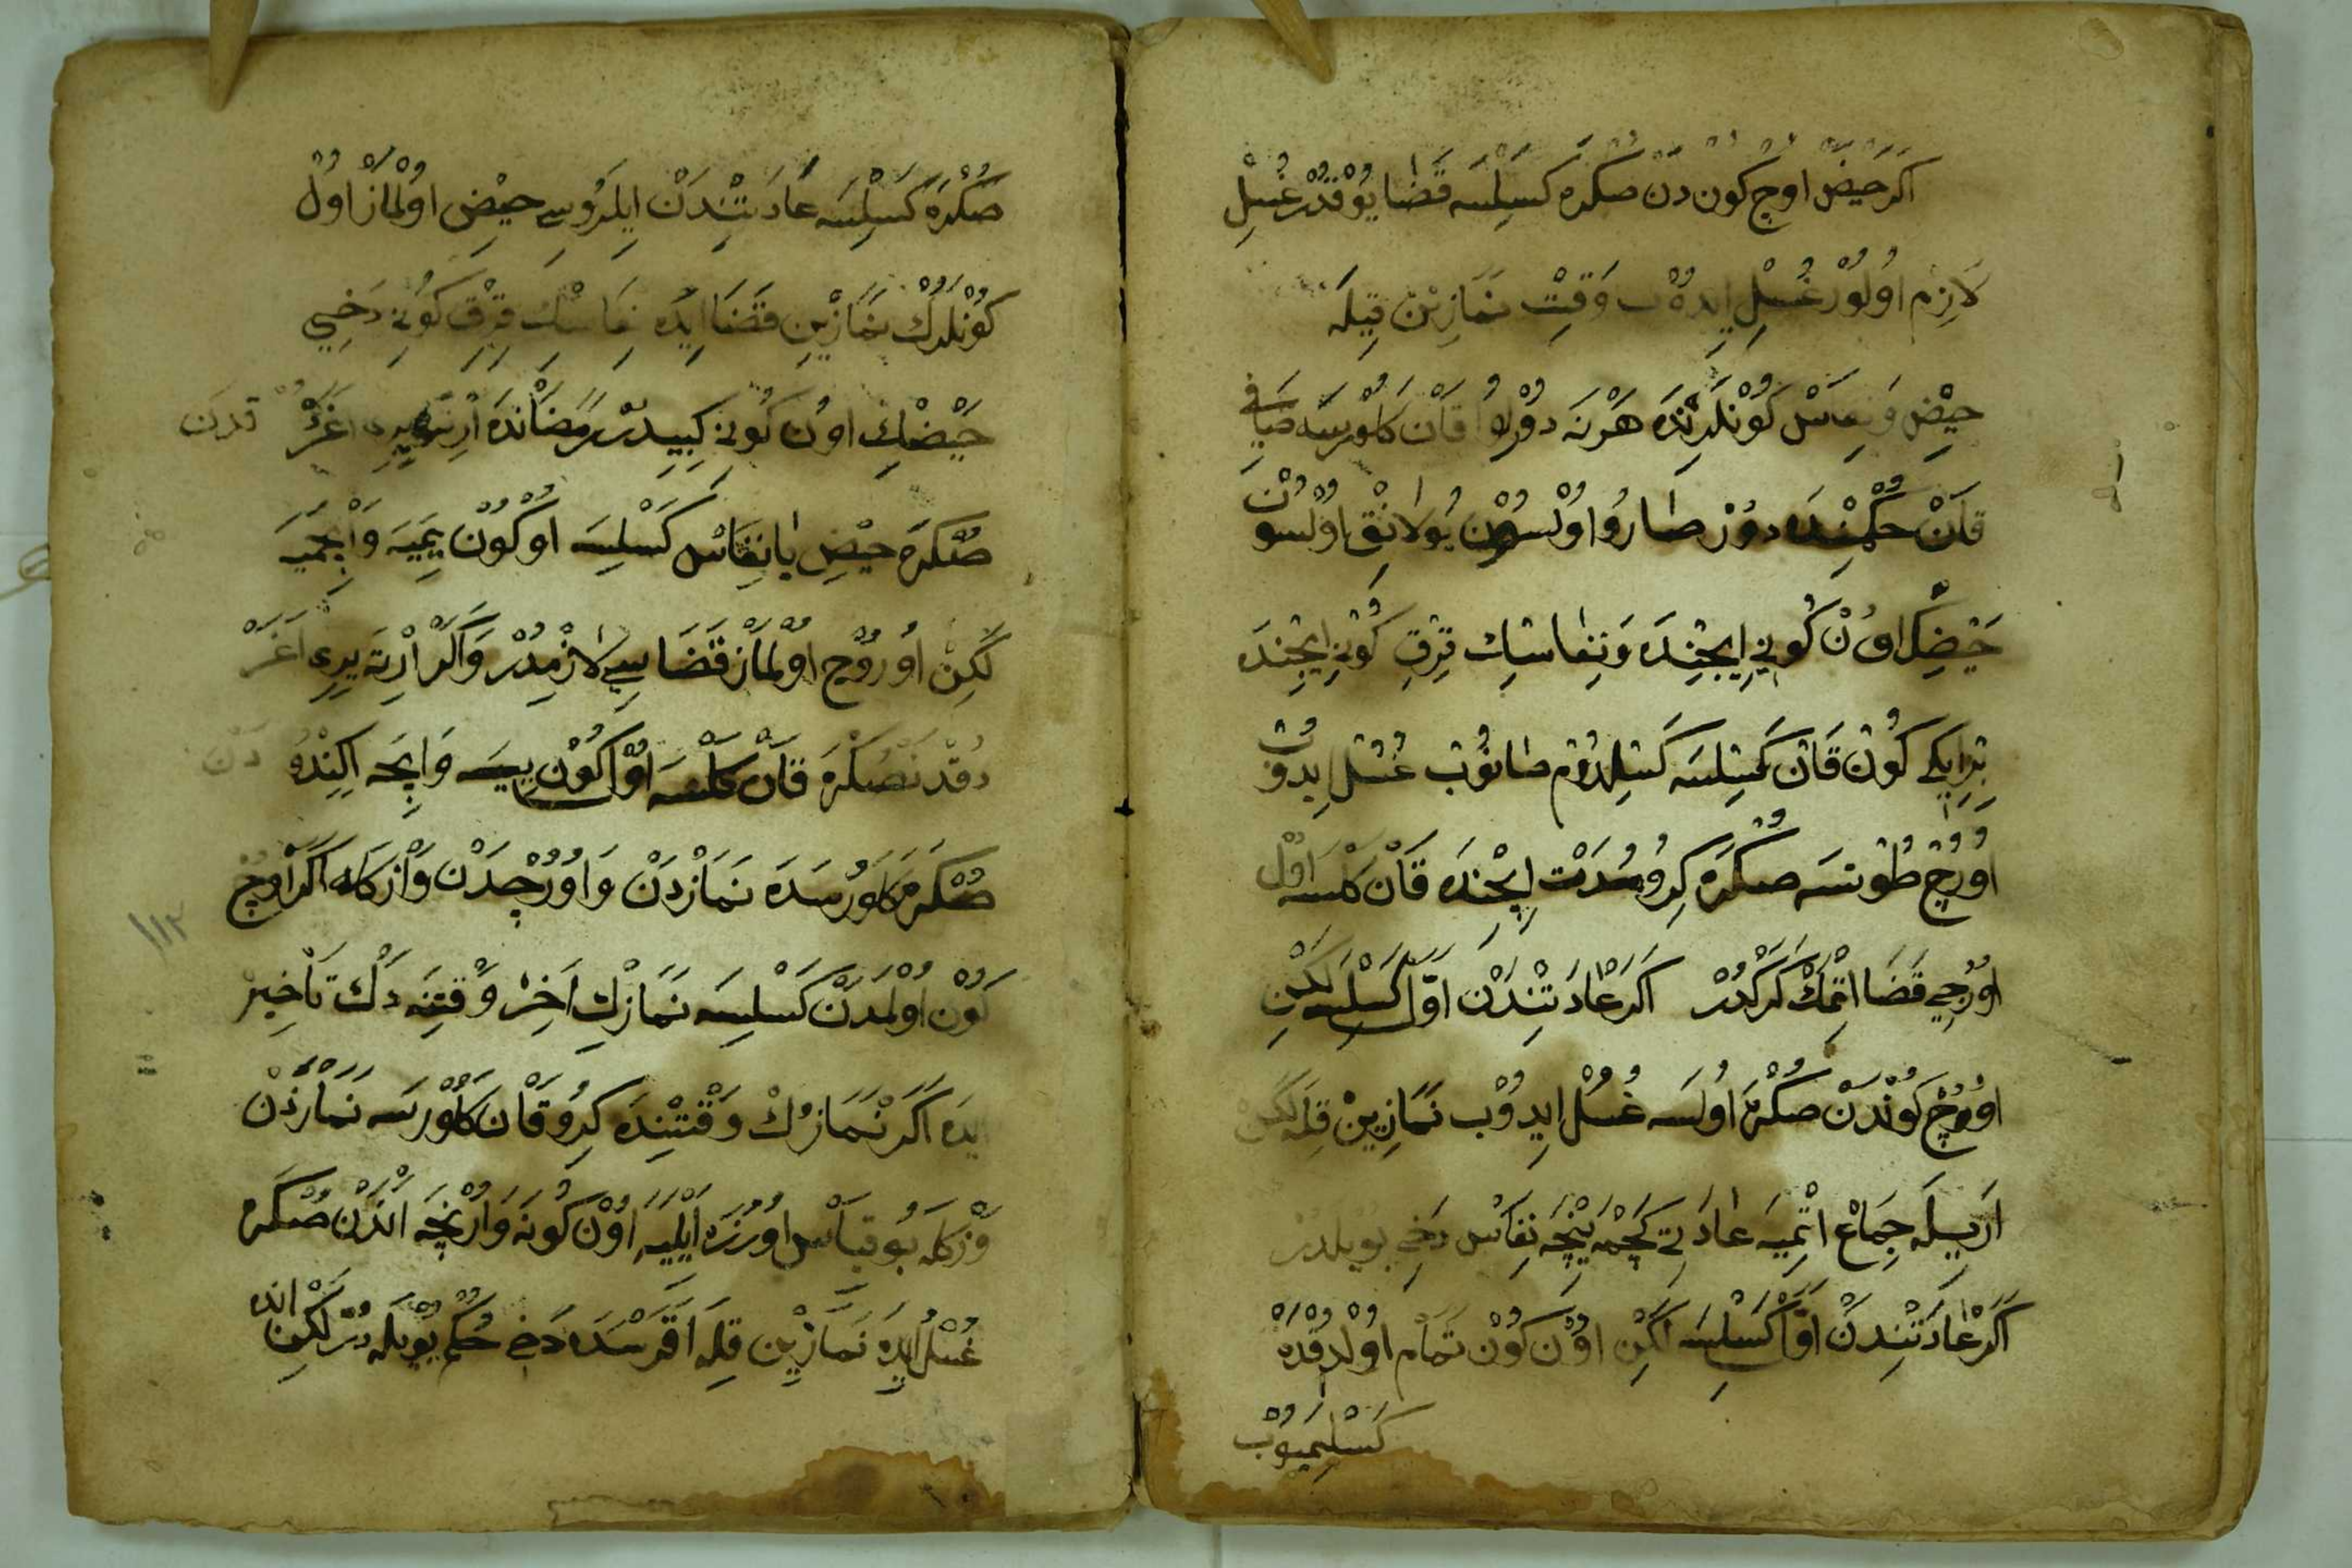 اَكَرْ حَيْضْ اوچ كون دن صكره كسلسه قَضَا يُوْقْدُرْ غُسْلْ
لَازِمْ اُولُورْ غُسْلْ ايدوب وَقِتْ نَمَازِيْنْ قِيلَه
حَيْضْ وَنِفَاسْ كُونْلَرِنْدَه هَرْ نَه دُوْرلُو قَانْ كَلُوْرسَه صَافِى
قَانْ حُكْمِنْدَه دُرْ صَارُو اوْلْسُوْن بُولَانِقْ اوْلْسُون
حَيْضِكْ اوُنْ كُونِى اِيچِنْدَه وَنِفَاسِكْ قِرْقْ كُونِى اِيچِنْدَه
بِرْ اِيكِى كُونْ قَانْ كَسِلْسَه كَسِلْدُومْ صَانُوبْ غُسْلْ اِيدُوبْ
اوُرُجْ طُوتْسَه صُكْرَه كِرُو مُدَّتْ اِيچِنْدَه قَانْ كَلْسَه اوُلْ
اوُرُجِى قَضَا اِتْمَكْ كَرَكْدُرْ اَكَرْ عَادَتِنْدَنْ اَوَّلْ كَسِلْسَه لَكِنْ
اوُچْ كُوْنْدَنْ صُكْرَه اُولْسَه غُسْلْ اِيدُوْبْ نَمَازِيْنْ قِلَه لَكِنْ
اَرِيلَه جِمَاعْ اِتْمِيَه عَادَتِى كَچْمَيِنْجَه نِفَاسْ دَخِى بُويْلَدُرْ
اَكَرْ عَادَتِنْدَنْ اَوَّلْ كَسِلْسَه لَكِنْ اوُنْ كُونْ تَمَامْ اوُلْدُقْدَه
كَسِلْمَيُوبْ
صُكْرَه كَسِلْسَه عَادَتِنْدَنْ اِيلَرُوسِى حَيْضْ اوُلْمَازْ اوُلْ
كُونْلَرُكْ نَمَازْيِنْ قَضَا اِيدَه نِفَاسِكْ قِرْقْ كُونِى دَخِى
حَيْضْكْ اوُنْ كُونِى كِبِيدُرْ رَمَضَانْدَه اِرْتَه يِرِى اَغَرْدُقْدَنْ
صُكْرَه حَيْضْ يَا نِفَاسْ كَسِلْسَه اوُ كُونْ يِمَيَه وَاِچْمَيَه
لَكِنْ اوُرُوجْ اوُلْمَازْ قَضَاسِى لَازِمْدُرْ وَاَكَرْ اِرْتَه يِرِى اَغَرْ
دُقْدَنْصُكْرَه قَانْ كَلْسَه اوُلْ كُونْ يِيَه وَاِيچَه اِكِنْدُو دَنْ
صُكْرَه كَلُورْسَدَه نَمَازْدَنْ وَاوُرُوچْدَنْ وَازْكَلَه اَكَرْ اوُچْ
كُونْ اوُلْمَدَنْ كَسِلْسَه نَمَازِكْ اَخِرْ وَقْتِنَه دَكْ تَأْخِيرْ
اِيدَه اَكَرْ نَمَازُكْ وَقْتِنْدَه كِرُو قَانْ كَلُوْرسَه نَمَازْدَنْ
وَزْكَلَه بُو قِيَاسْ اوُزَرَه اَيْلَيَه اوُنْ كُونَه وَارِنْجَه اَنْدَنْ صُكْرَه
غُسْلْ اِيدَه نَمَازْيِنْ قِلَه اَقَرْسَدَه دَخِى حُكْمْ بُويْلَه دُرْ لَكِنْ اَنْدَه
١١٢